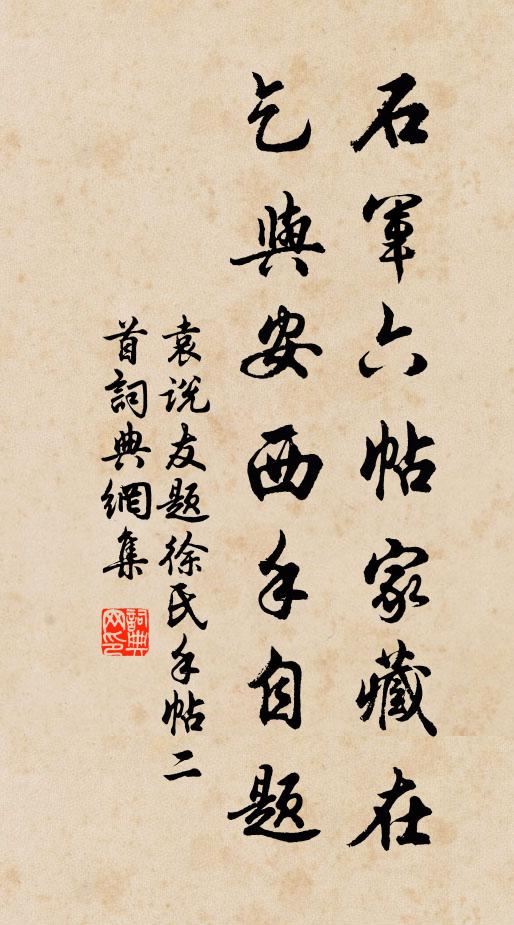 石軍六帖家藏在
乞與安西手自題
袁説友題徐氏手帖二
首詞典網集
詞典網印